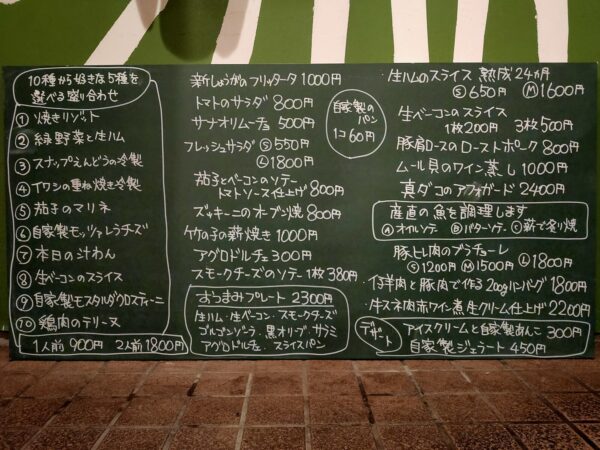 10種から好きな5種を
選べる盛り合わせ
① 焼きリゾット
② 緑野菜と生ハム
③ スナップえんどうの冷製
④ イワシの重ね焼き冷製
⑤ 茄子のマリネ
⑥ 自家製モッツァレラチーズ
⑦ 本日の汁わん
⑧ 生ベーコンのスライス
⑨ 自家製モスタルダクロスティーニ
⑩ 鶏肉のテリーヌ
1人前 900円 2人前 1800円
新しょうがのフリッタータ 1000円
トマトのサラダ 800円
サナオリムーチョ 500円
フレッシュサラダ Ⓢ550円
Ⓛ1800円
茄子とベーコンのソテー
トマトソース仕上げ 800円
ズッキーニのオーブン焼 800円
竹の子の薪焼き 1000円
アグロドルチェ 300円
スモークチーズのソテー 1枚 380円
おつまみプレート 2300円
生ハム・生ベーコン・スモークチーズ
ゴルゴンゾーラ・黒オリーブ・サラミ
アグロドルチェ・スライスパン
自家製の
パン
1コ60円
・生ハムのスライス 熟成24カ月
Ⓢ650円 Ⓜ1600円
生ベーコンのスライス
1枚200円 3枚500円
豚肩ロースのローストポーク 800円
ムール貝のワイン蒸し 1000円
真ダコのアフォガード 2400円
産直の魚を調理します
Ⓐオイルソテー Ⓑバターソテー Ⓒ薪で炙り焼
豚ヒレ肉のブラチョーレ
Ⓢ1200円 Ⓜ1500円 Ⓛ1800円
・仔羊肉と豚肉で作る200gハンバーグ 1800円
・牛スネ肉赤ワイン煮生クリーム仕上げ 2200円
デザート
アイスクリームと自家製あんこ 300円
自家製ジェラート 450円